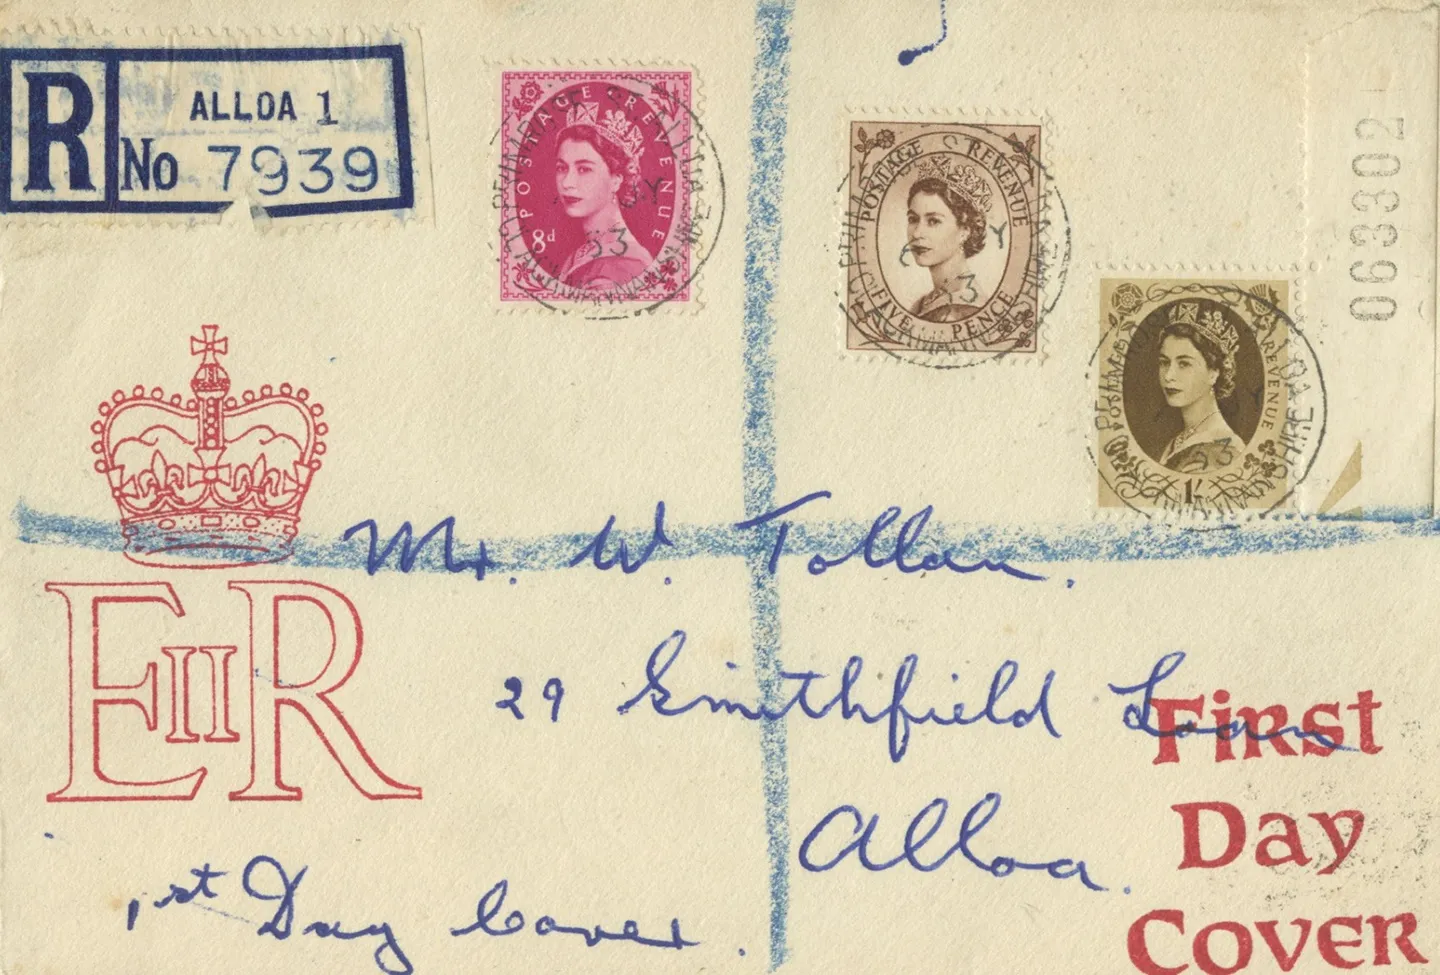 R
ALLOA 1
No 7939
POSTAGE REVENUE
8d
53
POSTAGE REVENUE
FIVE PENCE
063302
POSTAGE REVENUE
1/-
53
E II R
Mr. W. Tollan.
29 Smithfield Loan
Alloa.
1st Day Cover.
First
Day
Cover